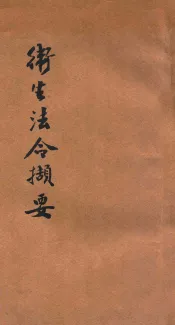 衛生法令擷要